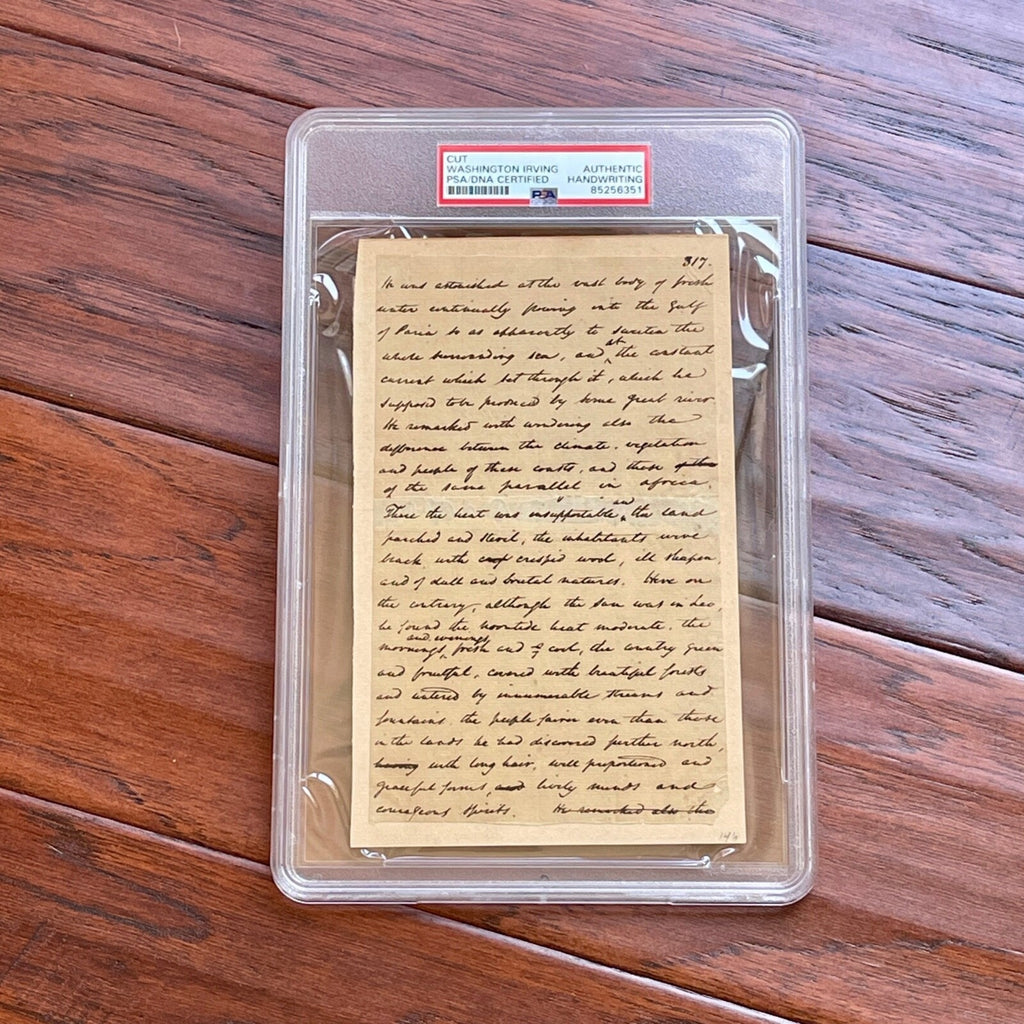 CUT
WASHINGTON IRVING AUTHENTIC
PSA/DNA CERTIFIED HANDWRITING
PSA 85256351
317.
He was astonished at the vast body of fresh
water continually flowing into the Gulf
of Paria so as apparently to sweeten the
whole surrounding sea, and at the constant
current which set through it, which he
supposed to be produced by some great river
He remarked with wondering also the
difference between the climate, vegetation
and people of these coasts, and those
of the same parallel in africa.
There the heat was insupportable, and the land
parched and steril, the inhabitants were
black, with crisped wool, ill shapen,
and of dull and brutal natures. Here on
the contrary, although the sun was in Leo,
he found the noontide heat moderate, the
mornings and evenings fresh and cool, the country green
and fruitful, covered with beautiful forests
and watered by innumerable streams and
fountains, the people fairer even than those
in the lands he had discovered further north,
having with long hair, well proportioned and
graceful forms, and lively minds and
courageous spirits. He remarked also the